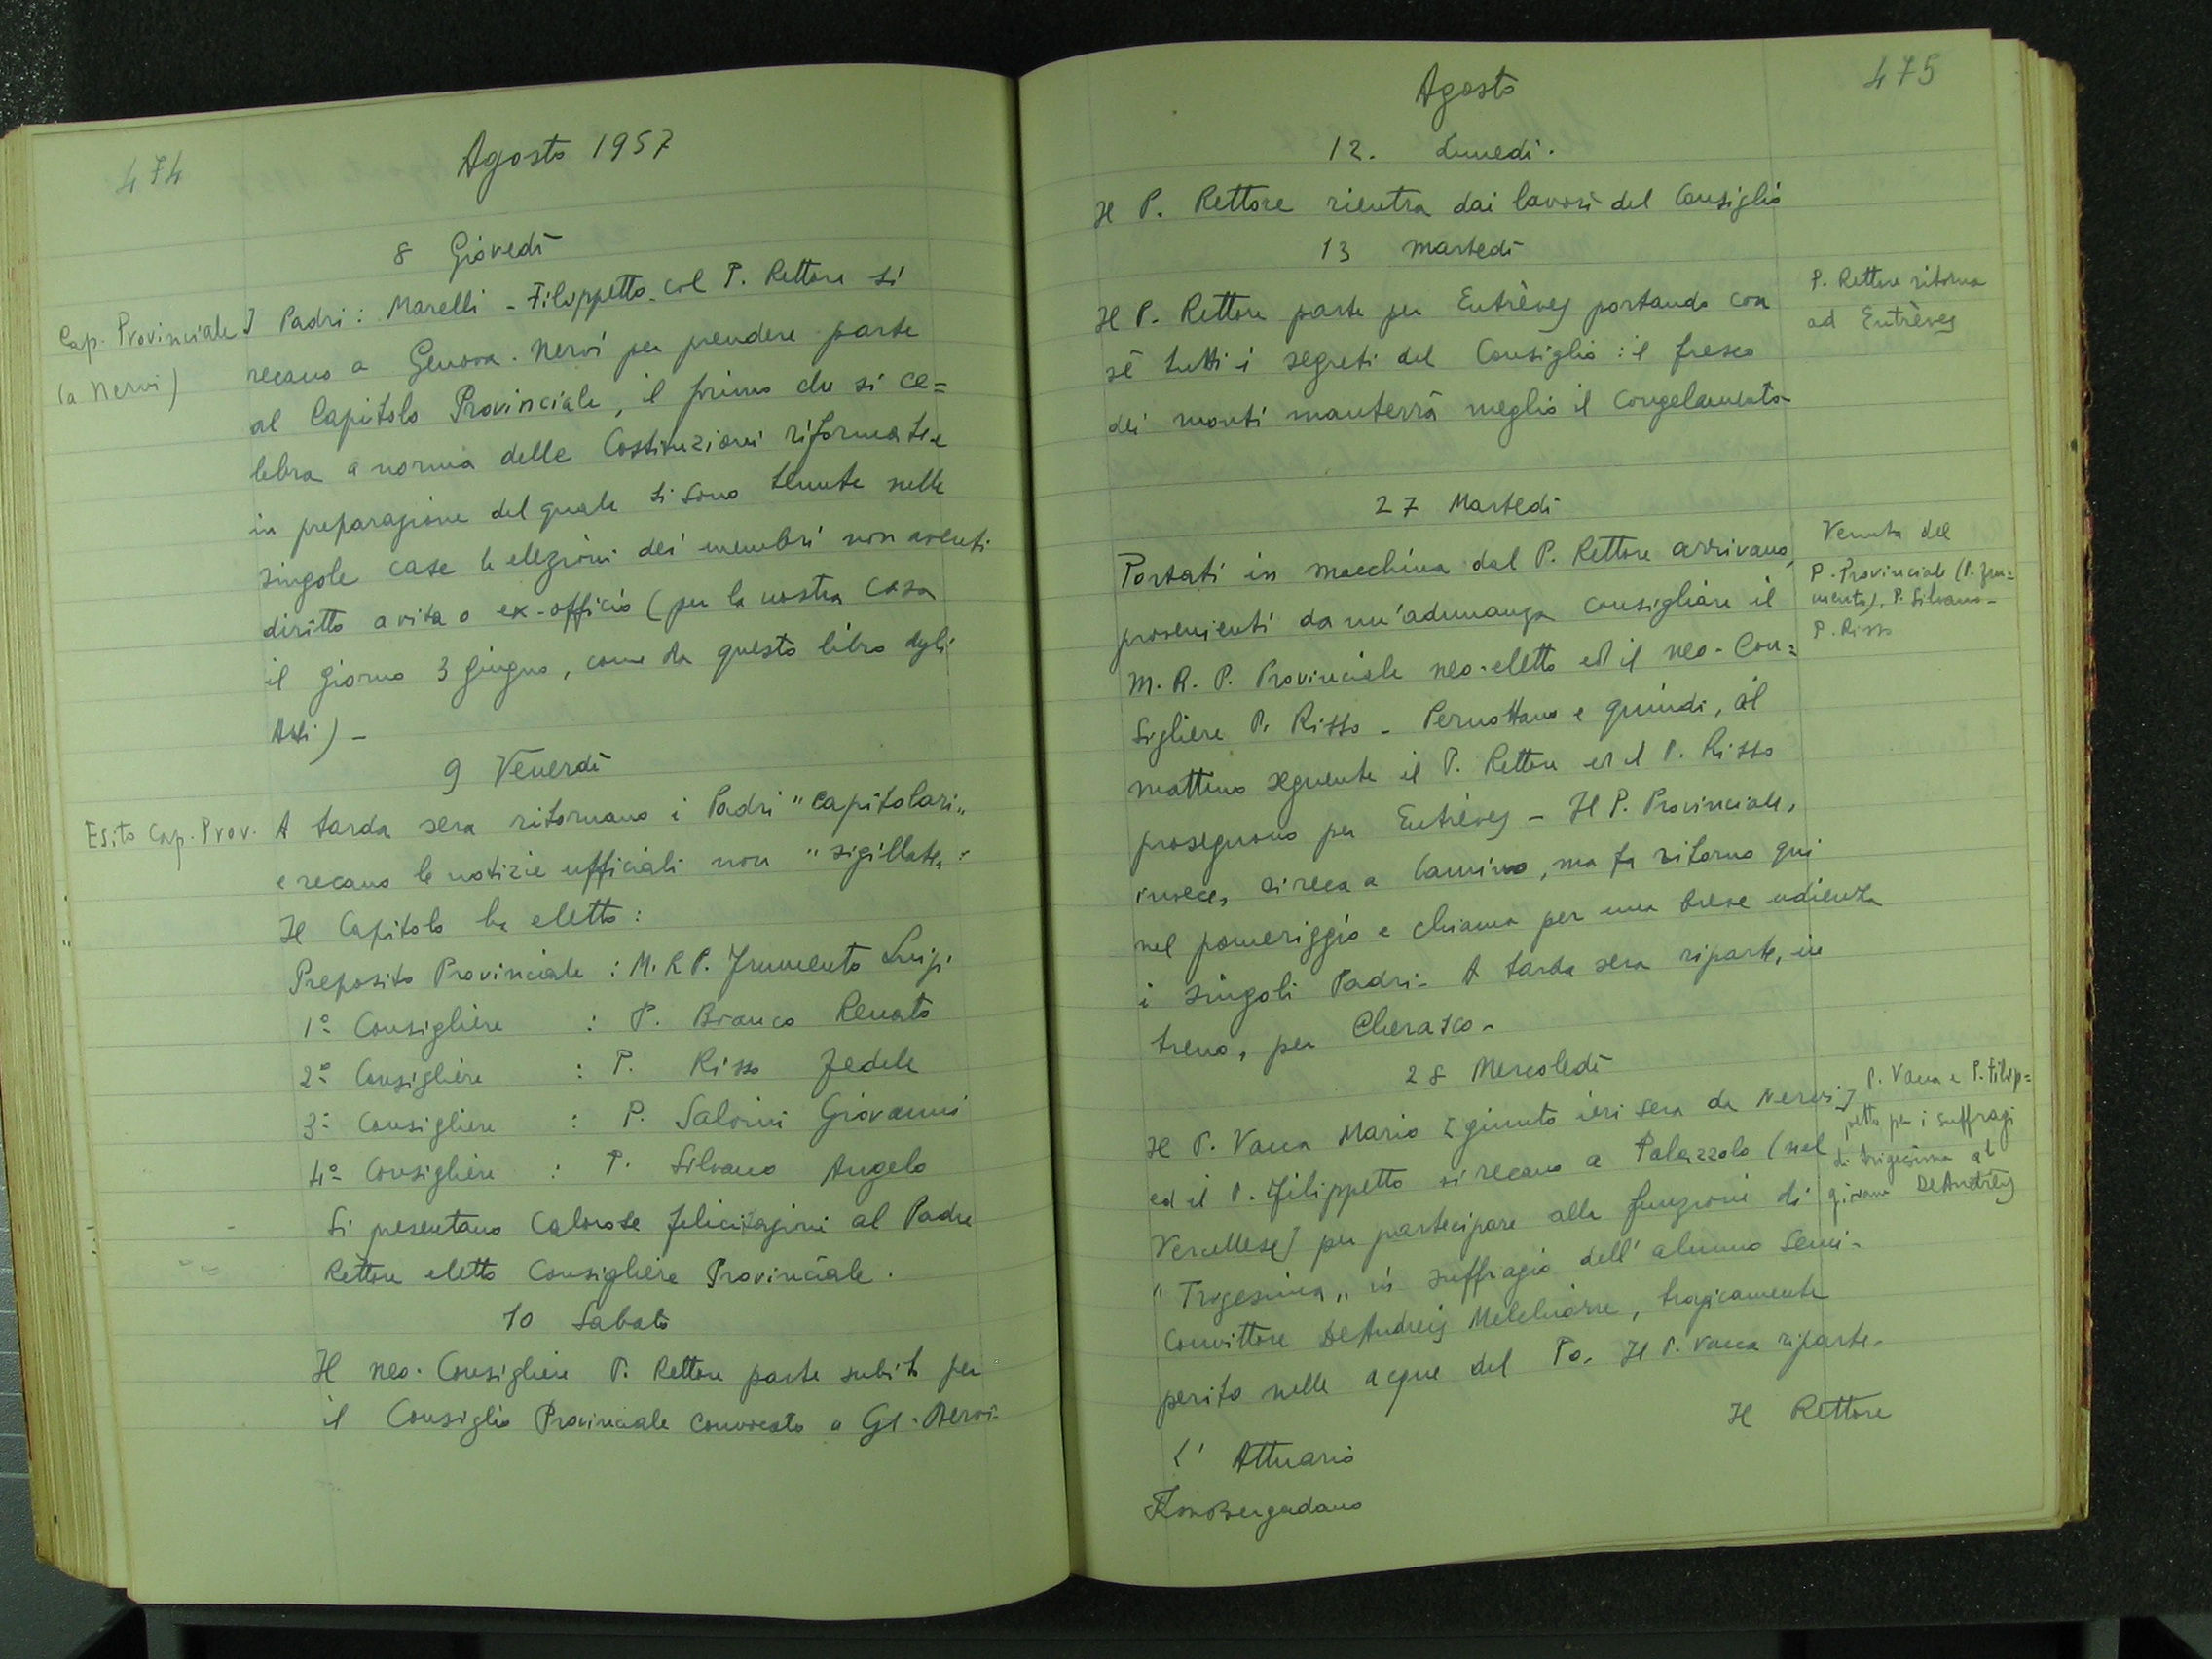 474
Agosto 1957
8 Giovedì
Cap. Provinciale
(a Nervi)
I Padri: Marelli - Filippetto - col P. Rettore si
recano a Genova - Nervi per prendere parte
al Capitolo Provinciale, il primo che si ce=
lebra a norma delle Costituzioni riformate e
in preparazione del quale si sono tenute nelle
singole case le elezioni dei membri non aventi
diritto a vita o ex-officio (per la nostra casa
il giorno 3 giugno, come da questo libro degli
Atti) -
9 Venerdì
Esito Cap. Prov.
A tarda sera ritornano i Padri "capitolari"
e recano le notizie ufficiali non "sigillate":
Il Capitolo ha eletto:
Preposito Provinciale : M. R P. Frumento Luigi
1º Consigliere : P. Bianco Renato
2º Consigliere : P. Risso Fedele
3º Consigliere : P. Salvini Giovanni
4º Consigliere : P. Silvano Angelo
Si presentano calorose felicitazioni al Padre
Rettore eletto Consigliere Provinciale.
10 Sabato
Il neo-Consigliere P. Rettore parte subito per
il Consiglio Provinciale convocato a Ge-Nervi-
475
Agosto
12. Lunedì.
Il P. Rettore rientra dai lavori del Consiglio
13 martedì
P. Rettore ritorna
ad Entrèves
Il P. Rettore parte per Entrèves portando con
sè tutti i segreti del Consiglio: il fresco
dei monti manterrà meglio il congelamento-
27 Martedì
Venuta del
P. Provinciale (P. Fru=
mento), P. Silvano -
P. Risso
Portati in macchina dal P. Rettore arrivano,
provenienti da un'adunanza consigliare il
M. R. P. Provinciale neo-eletto ed il neo-Con=
sigliere P. Risso - Pernottano e quindi, al
mattino seguente il P. Rettore ed il P. Risso
proseguono per Entrèves - Il P. Provinciale,
invece, si reca a Camino, ma fa ritorno qui
nel pomeriggio e chiama per una breve udienza
i singoli Padri - A tarda sera riparte, in
treno, per Cherasco -
28 Mercoledì
P. Vacca e P. Filip=
petto per i suffragi
di trigesima al
giovane DeAndreis
Il P. Vacca Mario [giunto ieri sera da Nervi]
ed il P. Filippetto si recano a Palazzolo (nel
Vercellese) per partecipare alle funzioni di
"Trigesima" in suffragio dell'alunno semi-
convittore DeAndreis Melchiorre, tragicamente
perito nelle acque del Po. Il P. Vacca riparte.
Il Rettore
L' Attuario